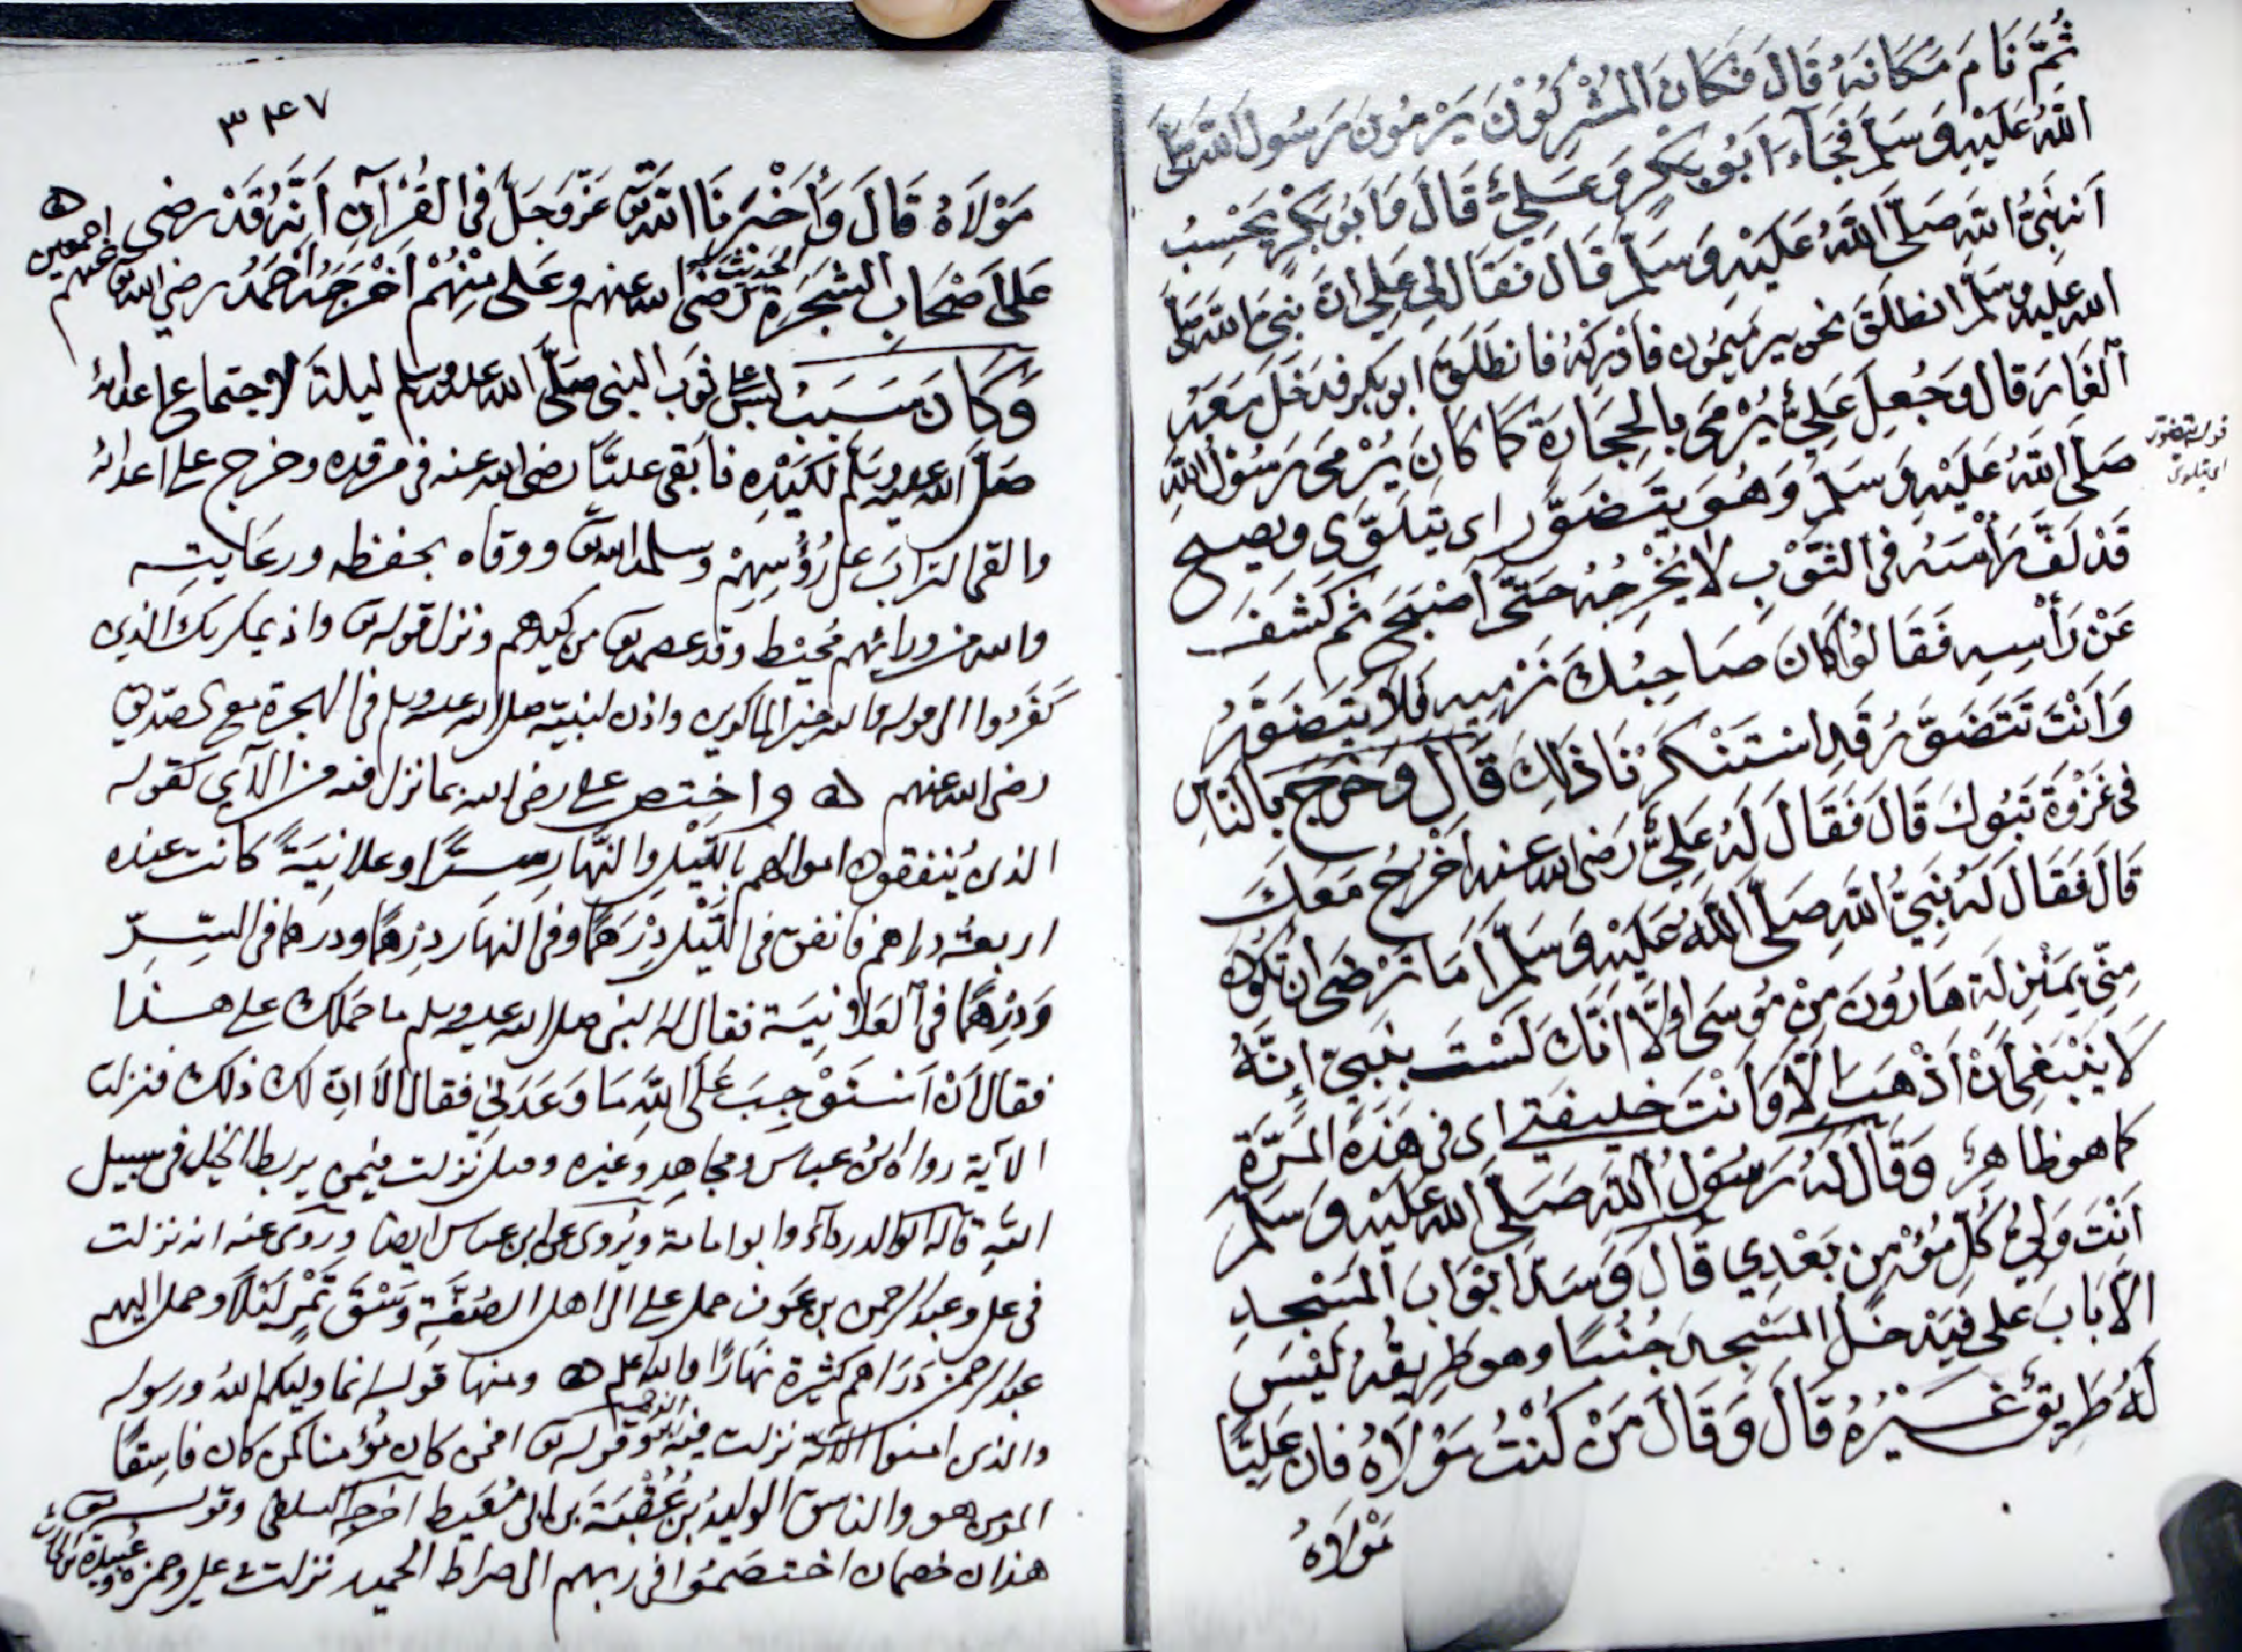 ثُمَّ نَامَ مَكَانَهُ قَالَ فَكَانَ المُشْرِكُوْنَ يَرْمُونَ رَسُولَ اللهِ صَلَّى
اللهُ عَلَيْهِ وَسَلَّمَ فَجَاءَ اَبُو بَكْرٍ وَعَلِيٌّ قَالَ وَاَبُو بَكْرٍ يَحْسِبُ
اَنَّهُ نَبِيُّ اللهِ صَلَّى اللهُ عَلَيْهِ وَسَلَّمَ قَالَ فَقَالَ لِي عَلِي اِنَّ نَبِيَّ اللهِ صَلَّى
الله عليه وسلَّم انطَلَقَ نحو بير مَيمُون فَاَدْرِكْهُ فانطَلَقَ ابو بكر فدَخَلَ مَعَهُ
الْغَارَ قال وَجُعِلَ عَلِيٌّ يُرْمَى بالحِجَارَةِ كَمَا كَانَ يُرْمَى رَسُوْلُ اللهِ
صَلَّى اللهُ عَلَيْهِ وَسَلَّمَ وَهُوَ يَتَضَوَّر اى يتَلَوَّى ويصيح
قوله يتضور
اى يتلوى
قَدْ لَفَّ رَأْسَهُ فى الثَّوْبِ لا يُخْرِجُهُ حَتَّى اَصْبَحَ ثم كَشَفَ
عَنْ رَأْسِهِ فَقَالُوا كَانَ صَاحِبُكَ نَرْمِيهِ فَلَا يَتَضَوَّرُ
وَاَنْتَ تَتَضَوَّرُ قَدِ اسْتَنْكَرْنَا ذَلِكَ قَالَ وَخَرَجَ بالنَّاسِ
فى غَزْوَةِ تَبُوكَ قَالَ فَقَالَ لَهُ عَلِيٌّ رَضى الله عنه اَخْرُجُ مَعَكَ
قَالَ فَقَالَ لَهُ نَبِيُّ اللهِ صَلَّى اللهُ عَلَيْهِ وَسَلَّمَ اَمَا تَرْضَى ان تَكُوْنَ
مِنّي بِمَنْزِلَةِ هَارُونَ مِنْ مُوسَى اِلَّا اَنَّكَ لَسْتَ بِنَبِيٍّ اِنَّهُ
لَا يَنْبَغِي اَنْ اَذْهَبَ اِلَّا وَاَنْتَ خَليفَتِي اى فى هَذِهِ المَرَّةِ
كما هو ظاهِرٌ وَقَالَ لَهُ رَسُوْلُ اللهِ صَلَّى الله عَلَيْهِ وَسَلَّم
اَنْتَ وَلِيُّ كُلِّ مُؤْمِنٍ بَعْدِي قَالَ وَسَدَّ اَبْوَابَ المَسْجِدِ
الَّا بَابَ على فَيَدْخُلُ المَسْجِدَ جُنُبًا وهو طَرِيقُهُ لَيْسَ
لَهُ طَرِيقٌ غَيْرُهُ قَالَ وَقَالَ مَنْ كُنْتُ مَوْلَاهُ فان عَلِيًّا
مَوْلَاهُ
٣٤٧
مَوْلَاهُ قَالَ وَأَخْبَرَنَا اللهُ عَزَّ وَجَلَّ فى القُرْآنِ اَنَّهُ قَدْ رضى
عَلَى اَصْحَابِ الشَّجَرَةِ الحديث رَضى الله عنهم وعَلى مِنْهُمْ اَخْرَجَهُ اَحْمَدُ رضى الله عنهم اجمعين
وَكَانَ سَبَبُ لبس على ثوب النبى صَلَّى الله عليه وسلم ليلة الاجتماع على اعدائه
صَلَّى الله عليه وسلَّم لكَيْدِهِ فاَبْقَى عليًّا رضى الله عنه فى مرقده وخرج على اعدائه
والقى التراب على رُؤُسِهِمْ وسلمه الله ووقاه بحفظه ورعايته
والله من ورائهم مُحيْط وقد عصمه من كيدهم ونزل قوله واذ يمكر بك الذين
كفَرُوا الى قوله والله خير الماكرين واذن لنبيّه صلى الله عليه وسلم فى الهجرة مع الصدّيق
رضى الله عنهم واختص على رضى الله بما نزل فيه من الآى كقوله
الذين يُنفقون اموالهم بالليل والنَّهار سرًّا وعلانيَةً كانت عنده
اربعة دراهم فانفق فى اللَّيْلِ دِرْهَمًا وفى النهار درهمًا ودرهما فى السِّرِّ
وَدِرْهَمًا فى العلانيَة فقال له النبى صلى الله عليه وسلم ما حَمَلك على هذا
فقال اَنْ اَسْتَوْجِبَ عَلَى اللهِ مَا وَعَدَنى فقال الا اِنّ لك ذلك فنزلت
الآية رواه ابن عباس ومجاهِد وغيره وقيل نَزلت فيمن يربط الخيل فى سبيل
اللهِ قاله ابو الدرداء وابو امامة ويُروى عن ابن عباس ايضا ورُوى عنه انه نزلت
فى على وعبد الرحمن بن عَوف حمل على الى اهل الصُفَّة وَسْقَ تَمْرٍ لَيْلًا وحمل اليهم
عبد الرحمن دَرَاهم كثيرة نهَارًا والله اعلم ومنها قوله انما وليكم اللهُ ورسوله
والذين امنوا الآية نزلت فيه وقوله افمن كان مُؤمنا كمن كان فاسِقًا
المؤمن هو والفاسق الوليدُ بن عُقْبَةَ بن ابى مُعَيط اخرجه السلفى وقوله
هذان خصمان اختصمُوا فى ربهم الى صراط الحميد نزلت فى على وحمزه وعُبيدة بن الحارث